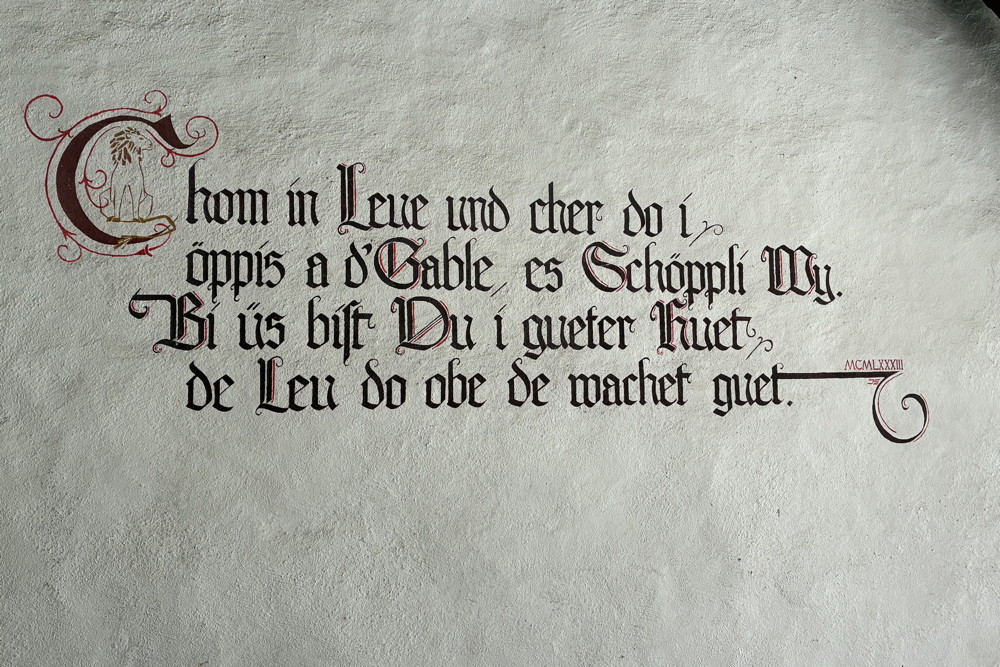 Chom in Leue und cher do i,
öppis a d'Gable, es Schöppli Wy.
Bi üs bist Du i gueter Huet,
de Leu do obe de wachet guet.
MCMLXXXIII